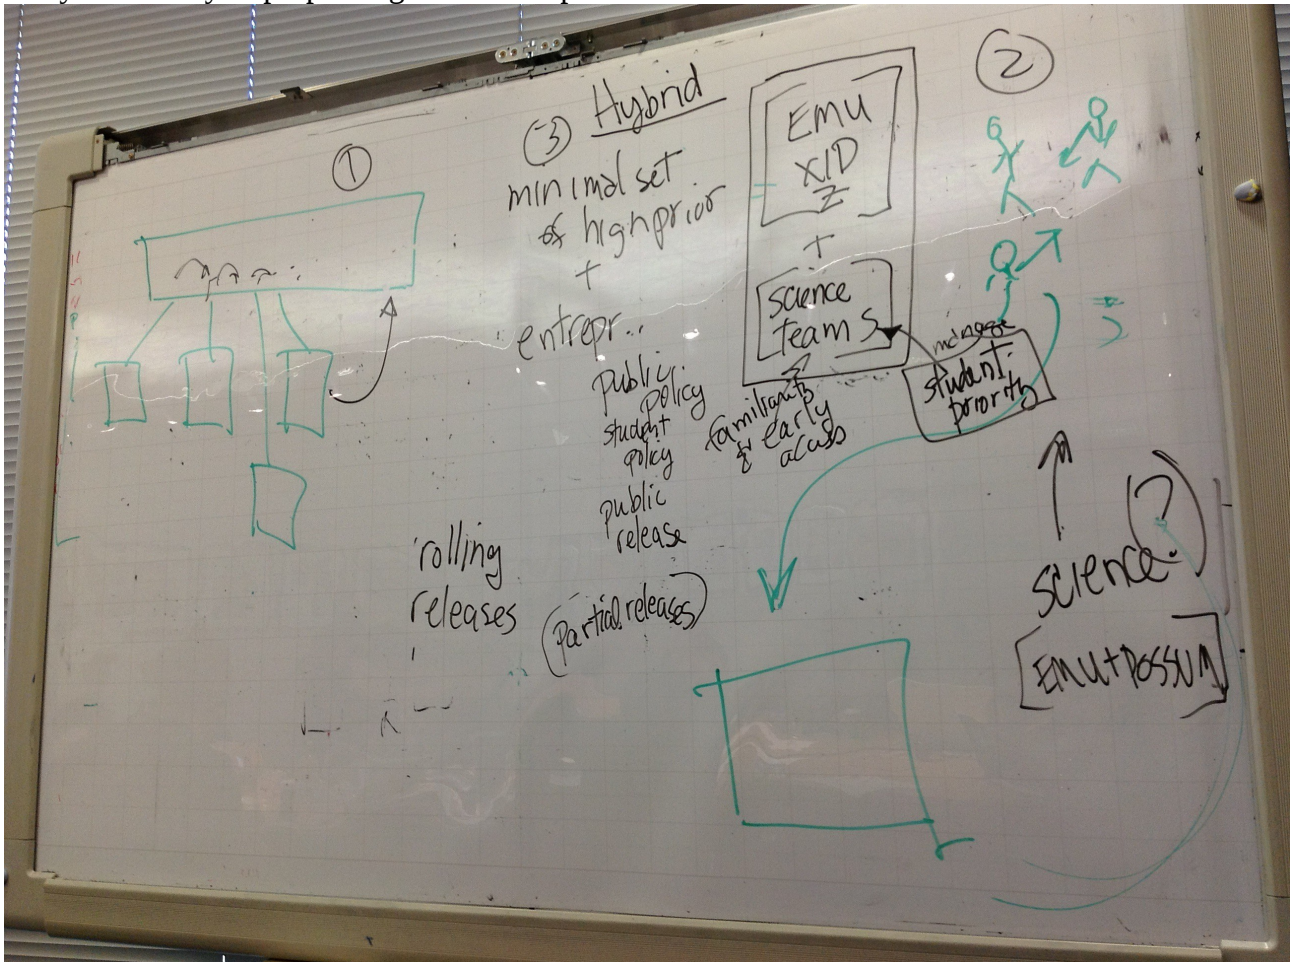 ①
③ Hybrid
minimal set
of high prior
+
entrepr..
public
policy
student
policy
public
release
rolling
releases
(partial releases)
EMU
XID
Z
+
science
teams
familiarity
& early
access
②
manage
student
priority
(?)
science
[EMU+POSSUM]